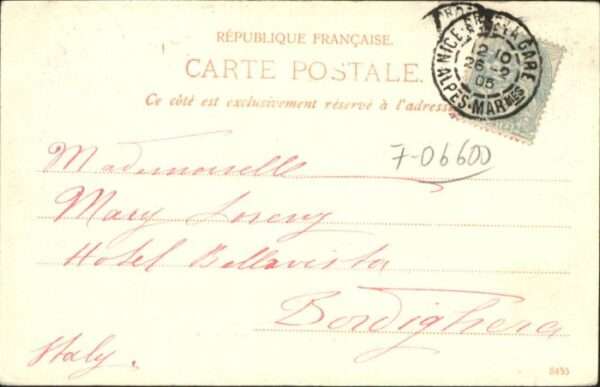 RÉPUBLIQUE FRANÇAISE.
CARTE POSTALE.
Ce côté est exclusivement réservé à l'adresse
NICE LA GARE
12 10
26 - 2
05
ALPES-MARMES
7-06600
Mademoiselle
Mary
Hotel Bellavista
Bordighera
Italy.